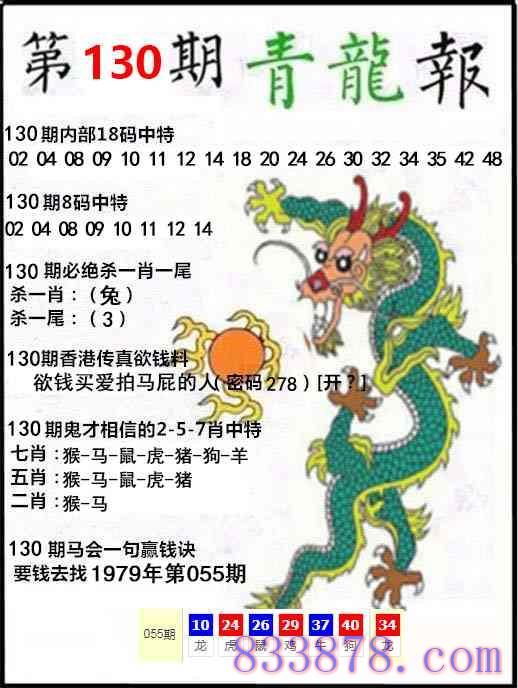 第130期 青龍報
130期内部18码中特
02 04 08 09 10 11 12 14 18 20 24 26 30 32 34 35 42 48
130期8码中特
02 04 08 09 10 11 12 14
130期必绝杀一肖一尾
杀一肖：（兔）
杀一尾：（3）
130期香港传真欲钱料
欲钱买爱拍马屁的人（密码278）[开？]
130期鬼才相信的2-5-7肖中特
七肖：猴-马-鼠-虎-猪-狗-羊
五肖：猴-马-鼠-虎-猪
二肖：猴-马
130期马会一句赢钱诀
要钱去找1979年第055期
055期 10 24 26 29 37 40 34
龙 虎 鼠 鸡 牛 狗 龙
833878.com